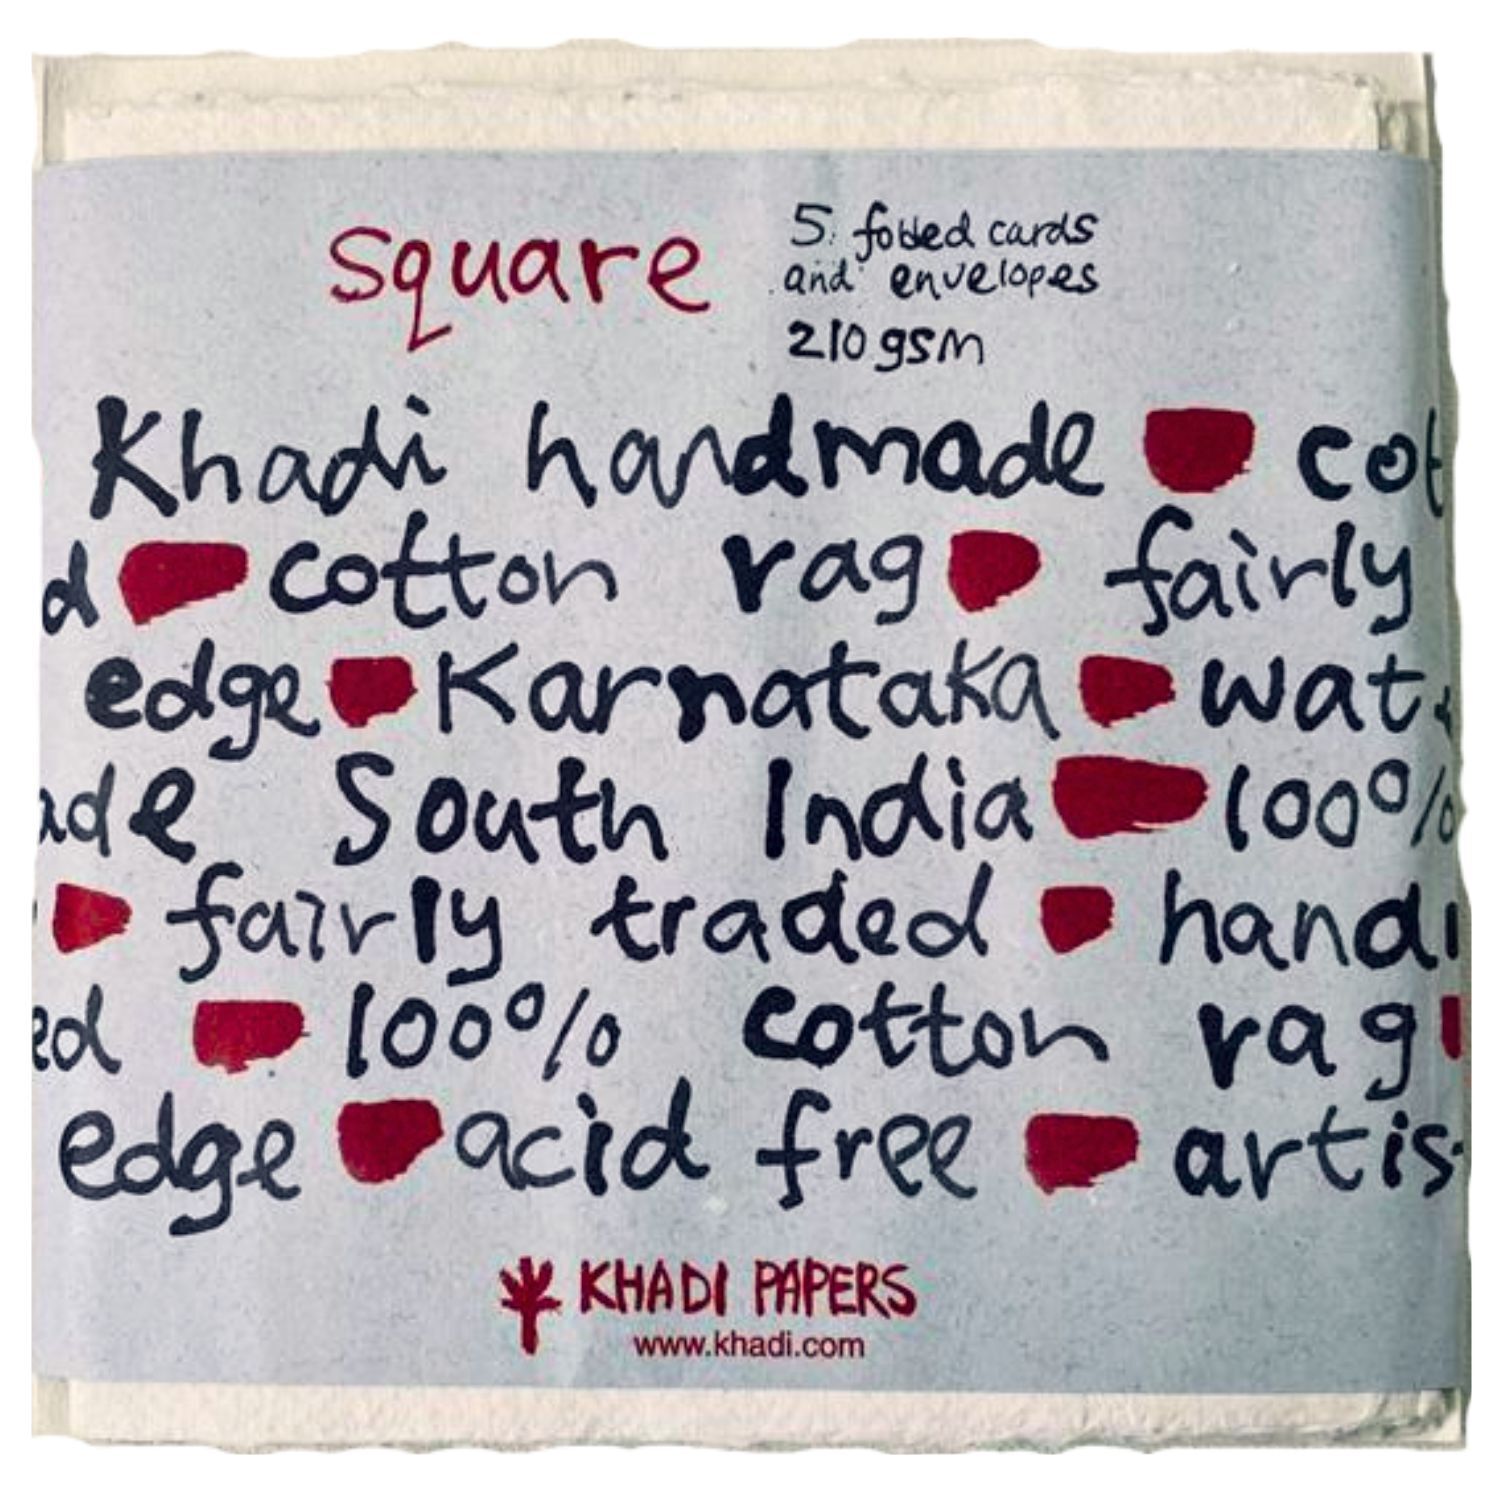 square
5 folded cards
and envelopes
210 gsm
Khadi handmade cot
d cotton rag fairly
edge Karnataka wat
ade South India 100%
fairly traded hand
ed 100% cotton rag
edge acid free artis
KHADI PAPERS
www.khadi.com